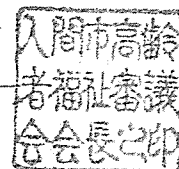 入間市高齢
者福祉審議
会会長之印